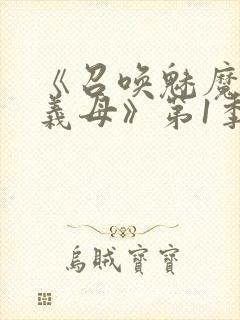 《召喚魅魔
義母》第1季
烏賊寶寶